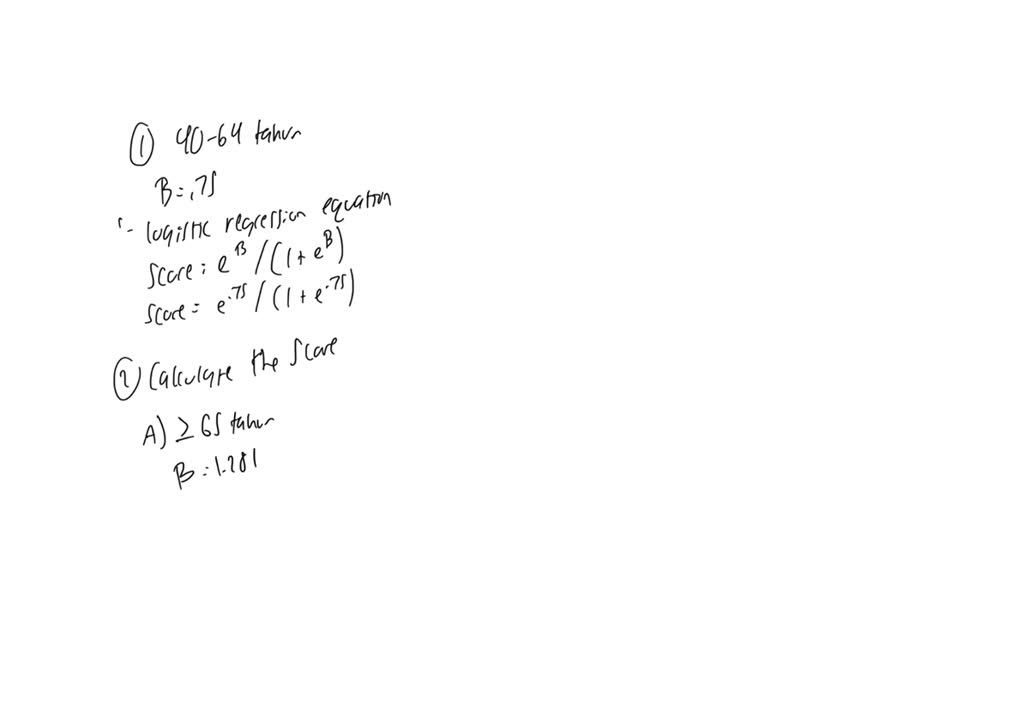 ① 40-64 tahun
B=.75
- logistic regression equation
Score: e^B/(1+e^B)
Score= e^.75/(1+e^.75)
② Calculate the Score
A) ≥65 tahun
B=1.281